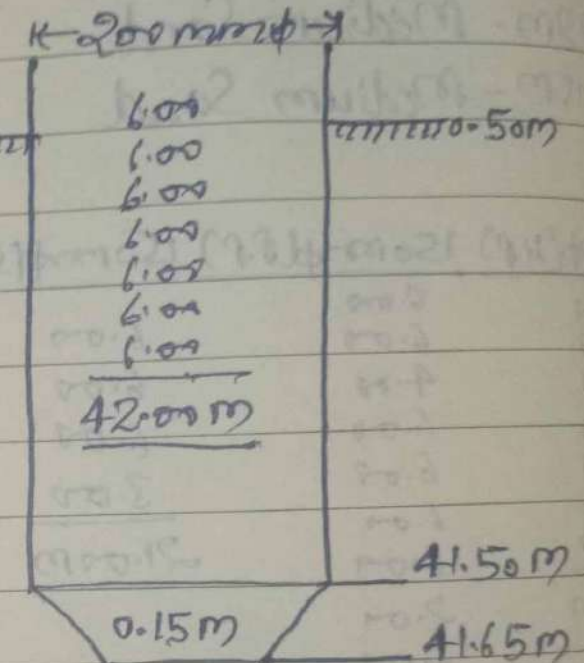 200mmφ
6.00
0.50m
6.00
6.00
6.00
6.00
6.00
6.00
42.00m
41.50m
0.15m
41.65m